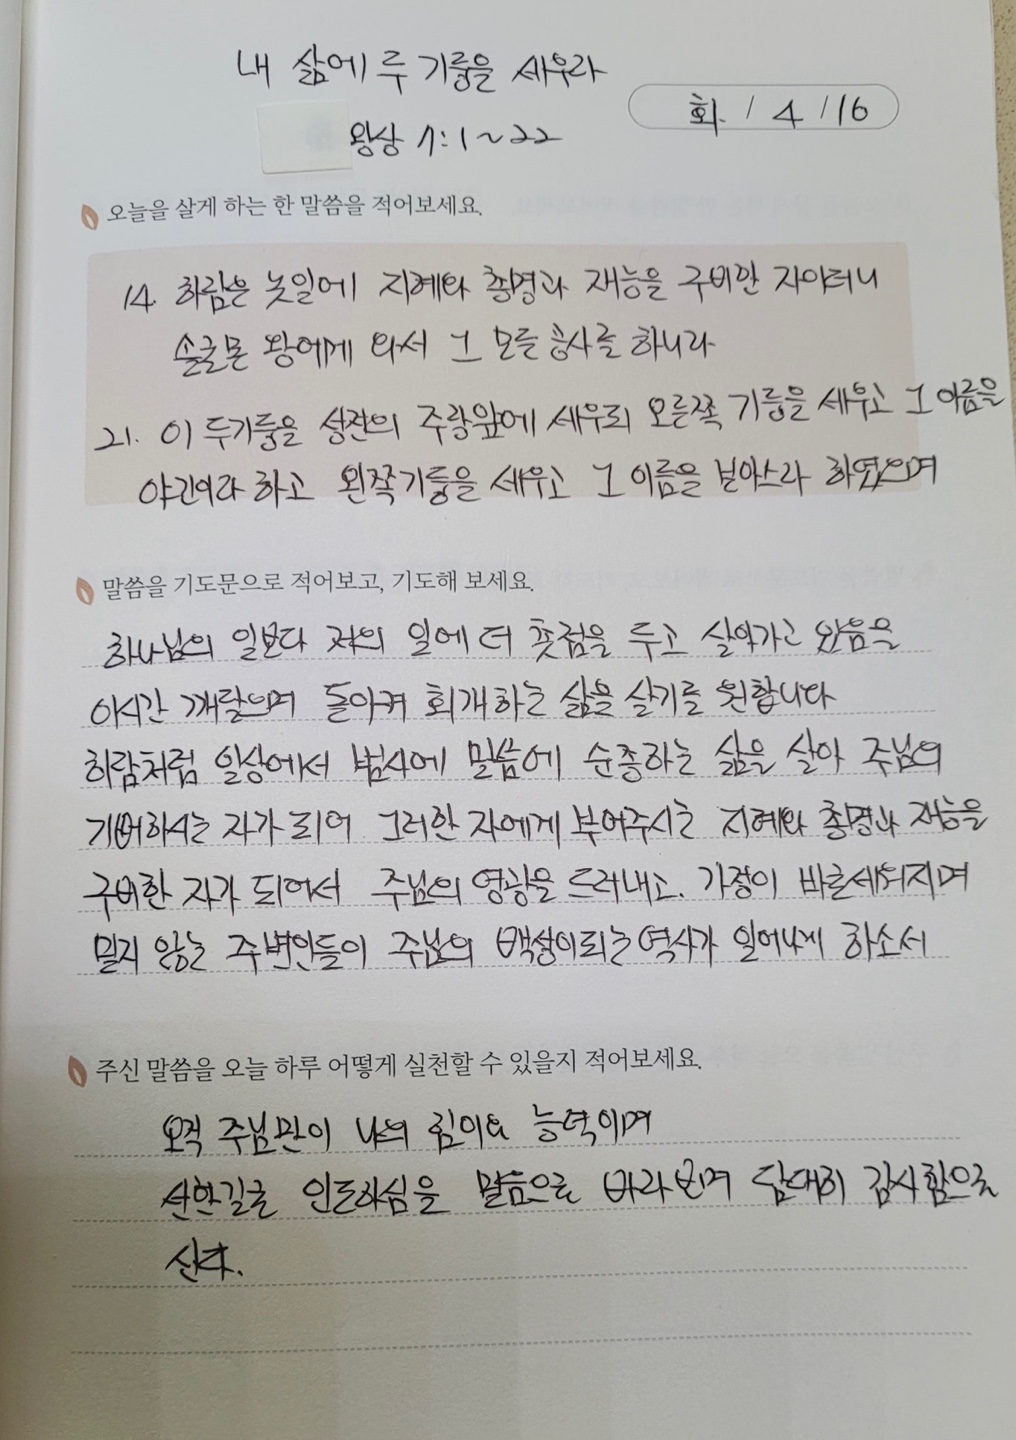 내 삶에 두 기둥을 세우라
화 / 4 / 16
왕상 7:1~22
오늘을 살게 하는 한 말씀을 적어보세요.
14. 히람은 놋일에 지혜와 총명과 재능을 구비한 자이더니
솔로몬 왕에게 와서 그 모든 공사를 하니라
21. 이 두기둥을 성전의 주랑앞에 세우되 오른쪽 기둥을 세우고 그 이름을
야긴이라 하고 왼쪽기둥을 세우고 그 이름을 보아스라 하였으며
말씀을 기도문으로 적어보고, 기도해 보세요.
하나님의 일보다 저의 일에 더 촛점을 두고 살아가고 있음을
이시간 깨달으며 돌이켜 회개하는 삶을 살기를 원합니다
히람처럼 일상에서 범사에 말씀에 순종하는 삶을 살아 주님의
기뻐하시는 자가 되어 그러한 자에게 부어주시는 지혜와 총명과 재능을
구비한 자가 되어서 주님의 영광을 드러내고. 가정이 바로세워지며
믿지 않는 주변인들이 주님의 백성이되는 역사가 일어나게 하소서
주신 말씀을 오늘 하루 어떻게 실천할 수 있을지 적어보세요.
오직 주님만이 나의 힘이요 능력이며
선한길로 인도하심을 말씀으로 바라보며 담대히 감사함으로
산다.